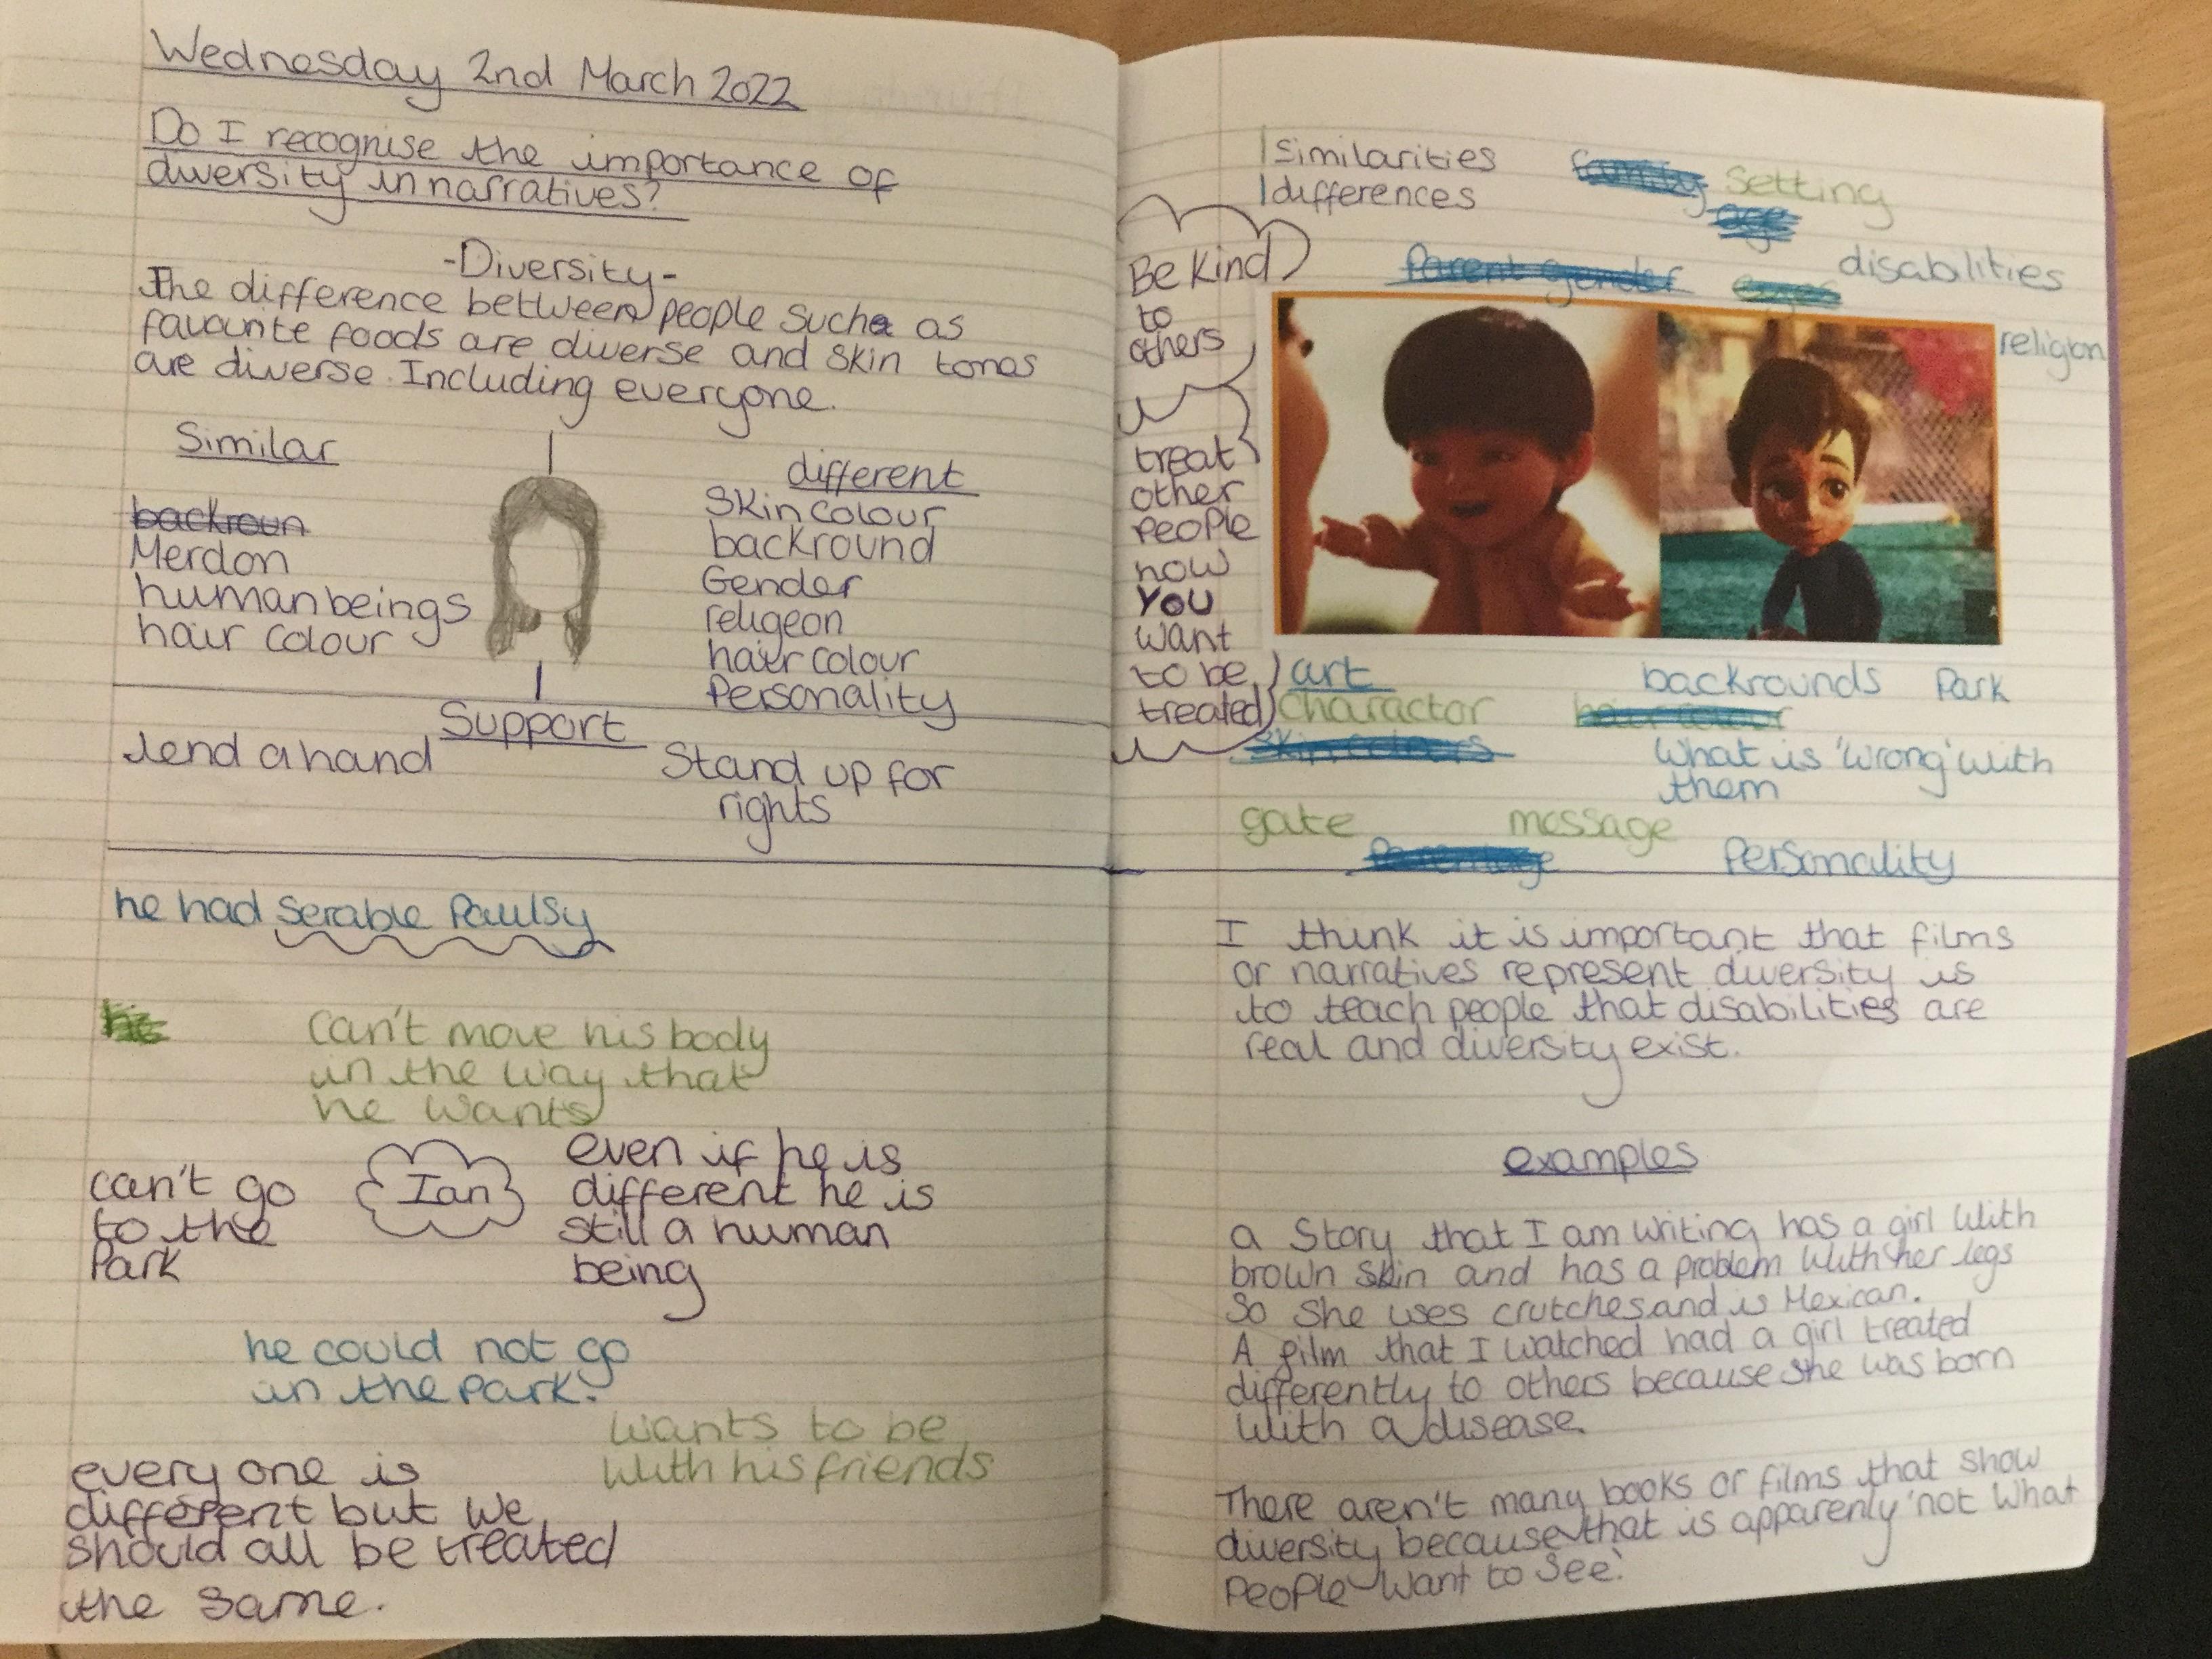 Wednesday 2nd March 2022
Do I recognise the importance of
diversity in narratives?
-Diversity-
The difference between people such as
favourite foods are diverse and skin tones
are diverse. Including everyone.
Similar
backroun
Merdon
human beings
hair colour
different
Skin colour
backround
Gender
religeon
hair colour
Personality
Support
lend a hand
Stand up for
rights
he had serable Paulsy
can't move his body
in the way that
he wants
can't go
to the
Park
Ian
even if he is
different he is
still a human
being
he could not go
in the park.
wants to be
with his friends
every one is
different but we
should all be treated
the same.
Similarities
differences
family setting
age
Parent gender
eyes
disabilities
religion
Be Kind
to
others
treat
other
People
how
YOU
want
to be
treated
art
backrounds Park
Charactor
hair colour
Skin colours
What is 'wrong' with
them
gate
message
Personality
I think it is important that films
or narratives represent diversity is
to teach people that disabilities are
real and diversity exist.
examples
a Story that I am writing has a girl with
brown skin and has a problem with her legs
So she uses crutches and is Mexican.
A film that I watched had a girl treated
differently to others because she was born
with a disease.
There aren't many books or films that show
diversity because that is apparenly 'not what
People want to see'.